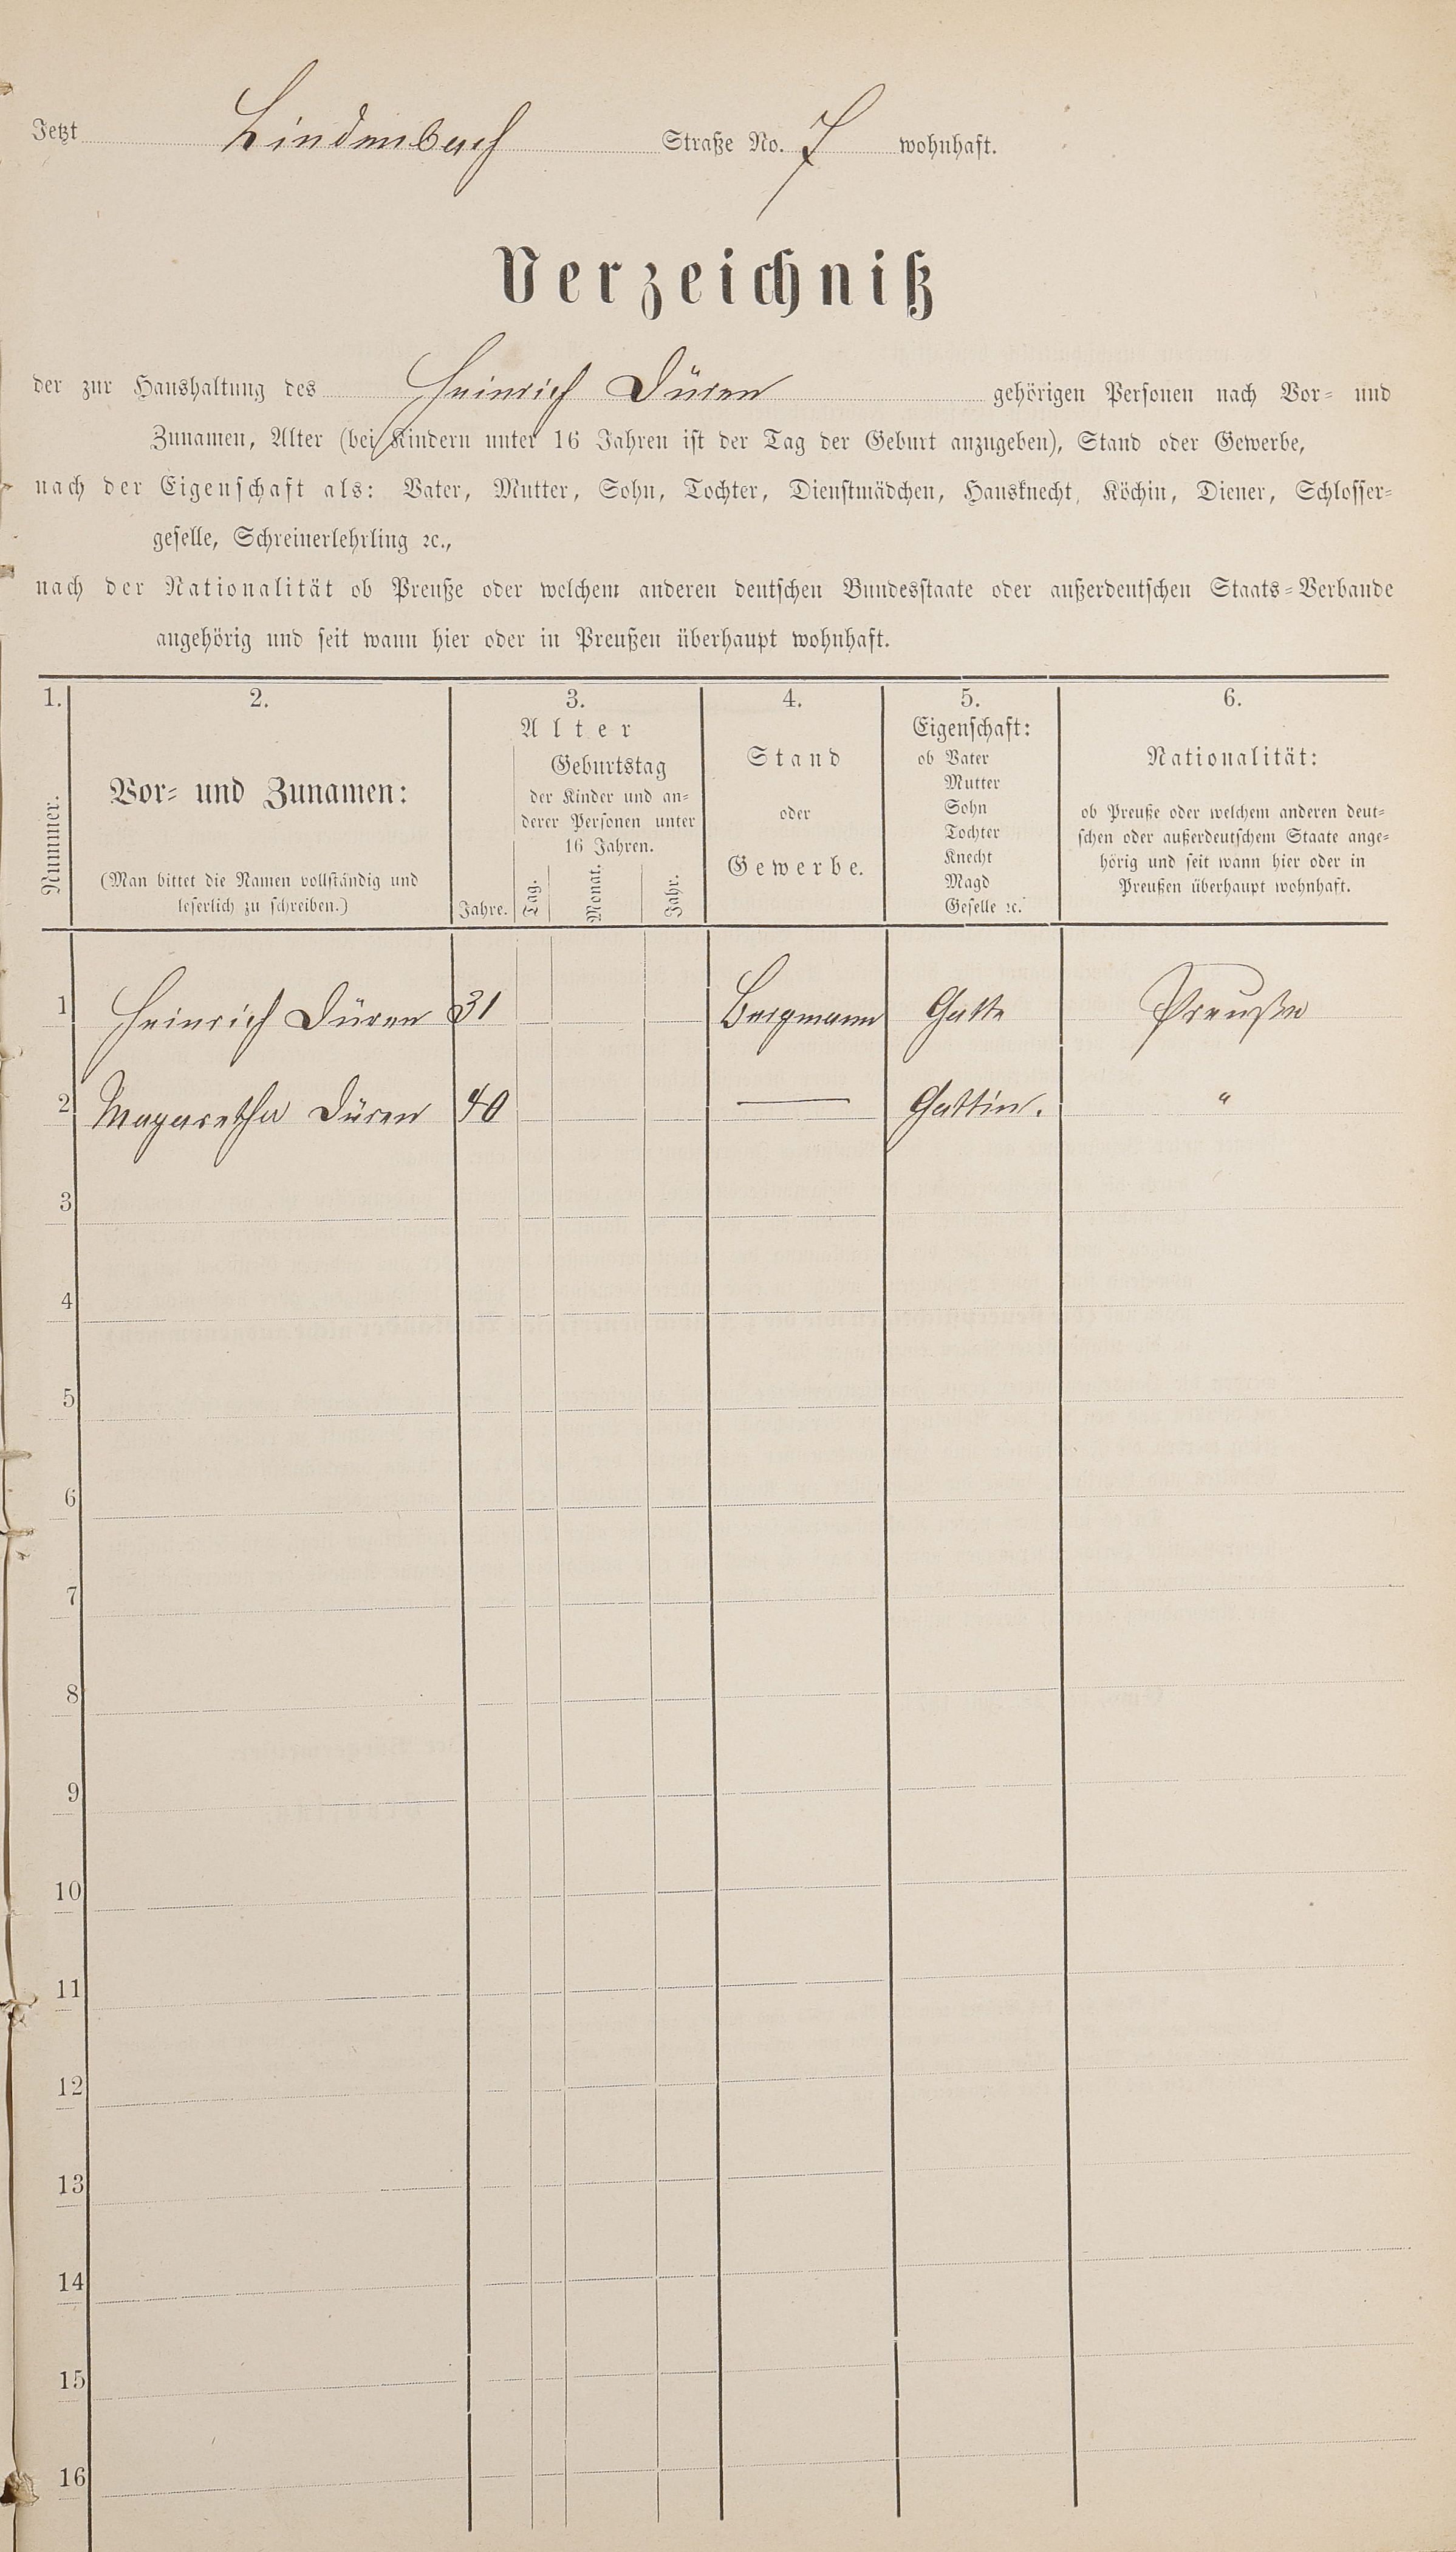 Jetzt Lindenbach Straße No. 7 wohnhaft.
Verzeichniß
der zur Haushaltung des Heinrich Düren gehörigen Personen nach Vor- und
Zunamen, Alter (bei Kindern unter 16 Jahren ist der Tag der Geburt anzugeben), Stand oder Gewerbe,
nach der Eigenschaft als: Vater, Mutter, Sohn, Tochter, Dienstmädchen, Hausknecht, Köchin, Diener, Schlosser-
geselle, Schreinerlehrling ꝛc.,
nach der Nationalität ob Preuße oder welchem anderen deutschen Bundesstaate oder außerdeutschen Staats-Verbande
angehörig und seit wann hier oder in Preußen überhaupt wohnhaft.
1.
Nummer.
2.
Vor- und Zunamen:
(Man bittet die Namen vollständig und
leserlich zu schreiben.)
3.
Alter
Jahre.
Geburtstag
der Kinder und an-
derer Personen unter
16 Jahren.
Tag.
Monat.
Jahr.
4.
Stand
oder
Gewerbe.
5.
Eigenschaft:
ob Vater
Mutter
Sohn
Tochter
Knecht
Magd
Geselle ꝛc.
6.
Nationalität:
ob Preuße oder welchem anderen deut-
schen oder außerdeutschem Staate ange-
hörig und seit wann hier oder in
Preußen überhaupt wohnhaft.
1 Heinrich Düren 31 Bergmann Gatte Preuße
2 Magaretha Düren 40 — Gattin. "
3
4
5
6
7
8
9
10
11
12
13
14
15
16